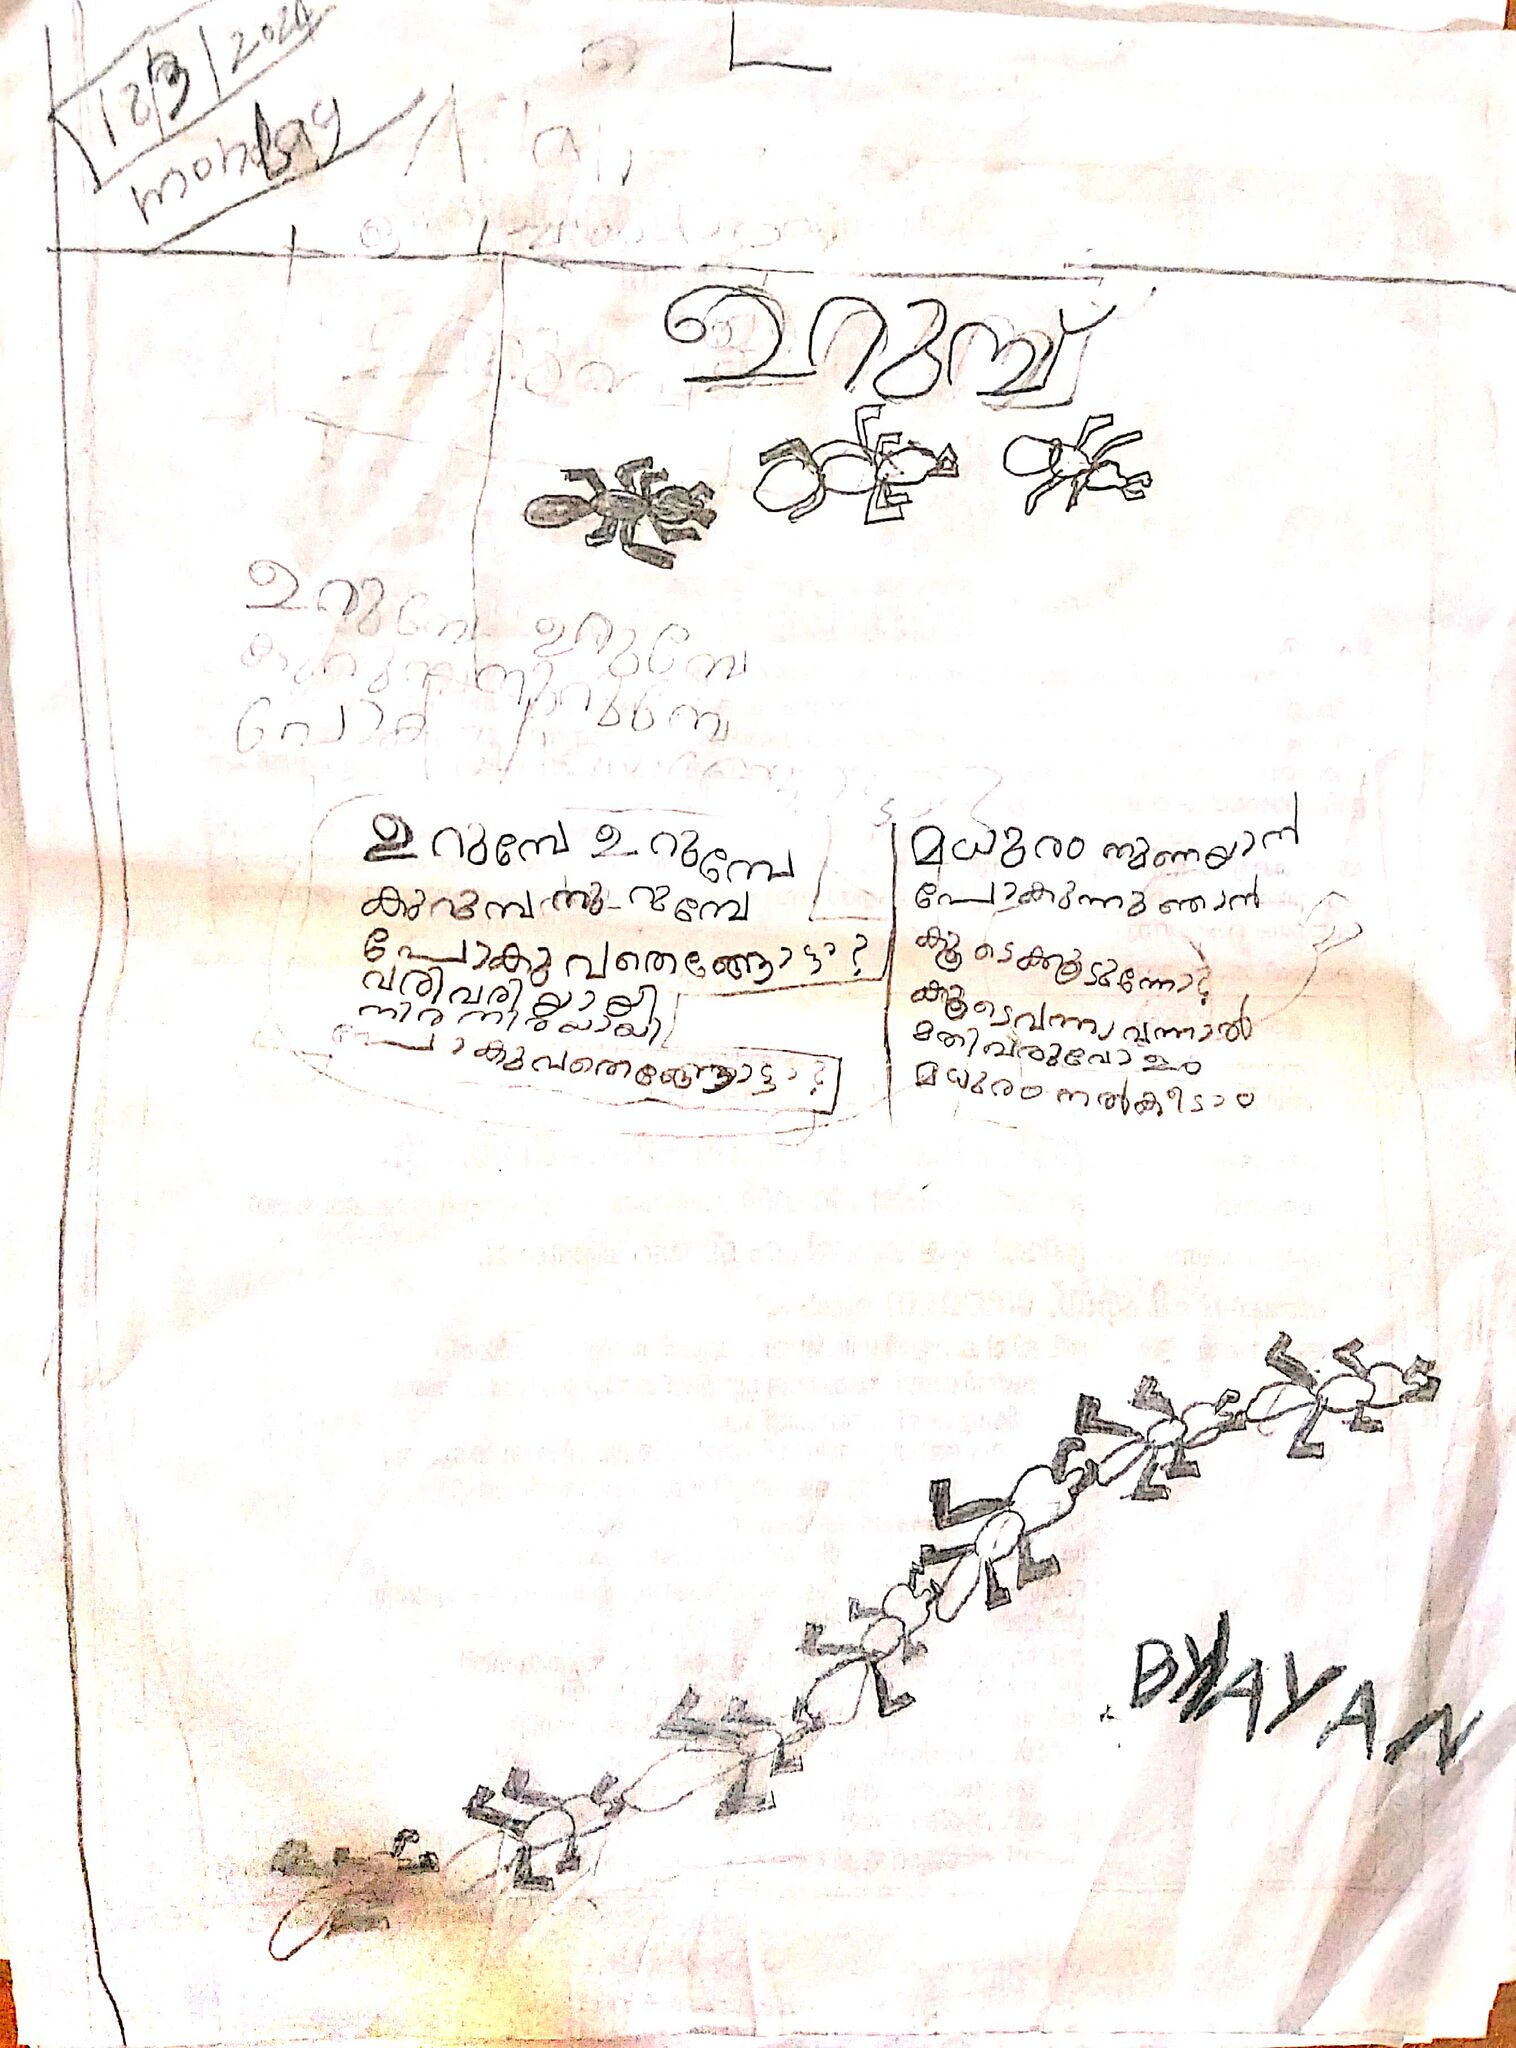 12/3/2024
monday
ഉറുമ്പ്
ഉറുമ്പേ ഉറുമ്പേ
ഉറുമ്പേ ഉറുമ്പേ
കുറുമ്പനുറുമ്പേ
പോകുവതെങ്ങോട്ടാ?
വരിവരിയായി
നിരനിരയായി
പോകുവതെങ്ങോട്ടാ?
മധുരം നുണയാൻ
പോകുന്നു ഞാൻ
കൂടെക്കൂടുന്നോ?
കൂടെവന്നാ വന്നാൽ
മതിവരുവോളം
മധുരം നൽകീടാം
BHAYAN